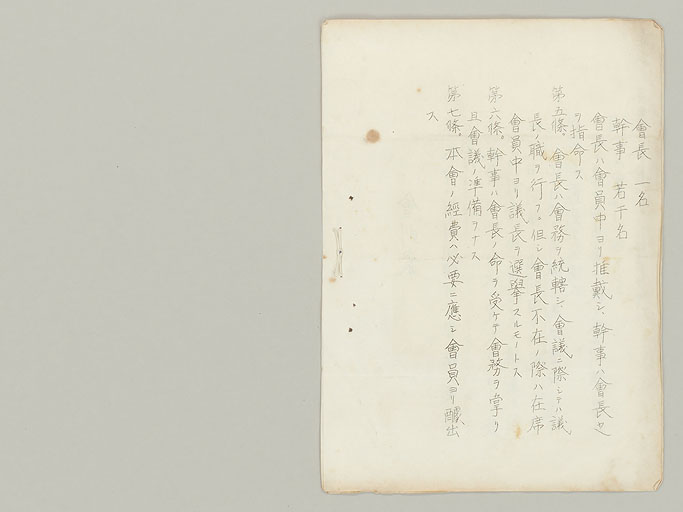 會長　一名
幹事　若干名
會長ハ會員中ヨリ推戴シ、幹事ハ會長之
ヲ指命ス
第五條　會長ハ會務ヲ統轄シ、會議ニ際シテハ議
長ノ職ヲ行フ。但シ會長不在ノ際ハ在席
會員中ヨリ議長ヲ選擧スルモノトス
第六條。幹事ハ會長ノ命ヲ受ケテ會務ヲ掌リ
且會議ノ準備ヲナス
第七條。本會ノ經費ハ必要ニ應シ會員ヨリ醵出
ス